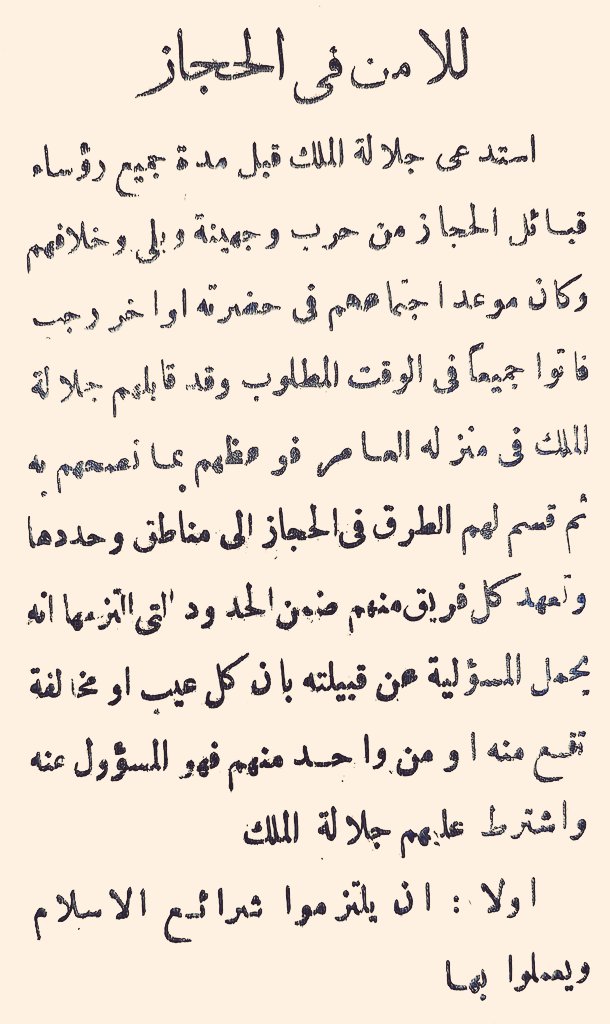 للامن فى الحجاز
استدعى جلالة الملك قبل مدة جميع رؤساء
قبائل الحجاز من حرب وجهينة وبلي وخلافهم
وكان موعد اجتماعهم فى حضرته اواخر رجب
فاتوا جميعاً فى الوقت المطلوب وقد قابلهم جلالة
الملك فى منزله العامر فوعظهم بما نصحهم به
ثم قسم لهم الطرق فى الحجاز الى مناطق وحددها
وتعهد كل فريق منهم ضمن الحدود التى التزمها انه
يحمل المسؤلية عن قبيلته بان كل عيب او مخالفة
تقع منه او من واحد منهم فهو المسؤول عنه
واشترط عليهم جلالة الملك
اولا : ان يلتزموا شرائع الاسلام
ويعملوا بها